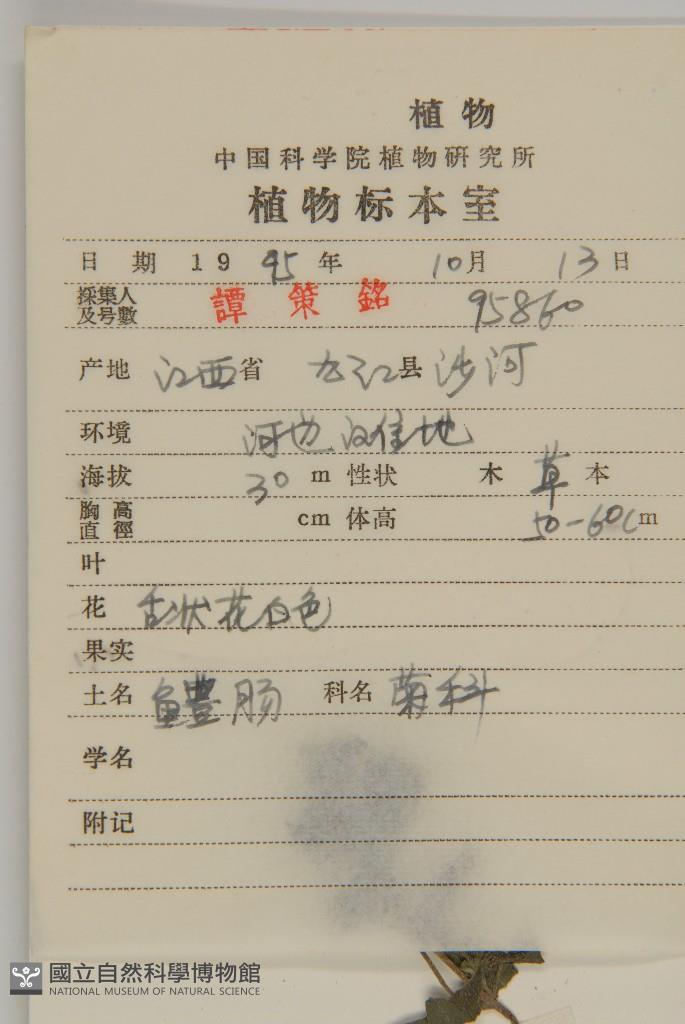 植物
中国科学院植物研究所
植物标本室
日期 1995年 10月 13日
採集人及号數 譚策銘 95860
产地 江西省 九江县 沙河
环境 河边
海拔 30 m 性状 木 草 本
胸高直徑 cm 体高 50-60cm
叶
花 舌状花白色
果实
土名 鱧肠 科名 菊科
学名
附记
國立自然科學博物館
NATIONAL MUSEUM OF NATURAL SCIENCE